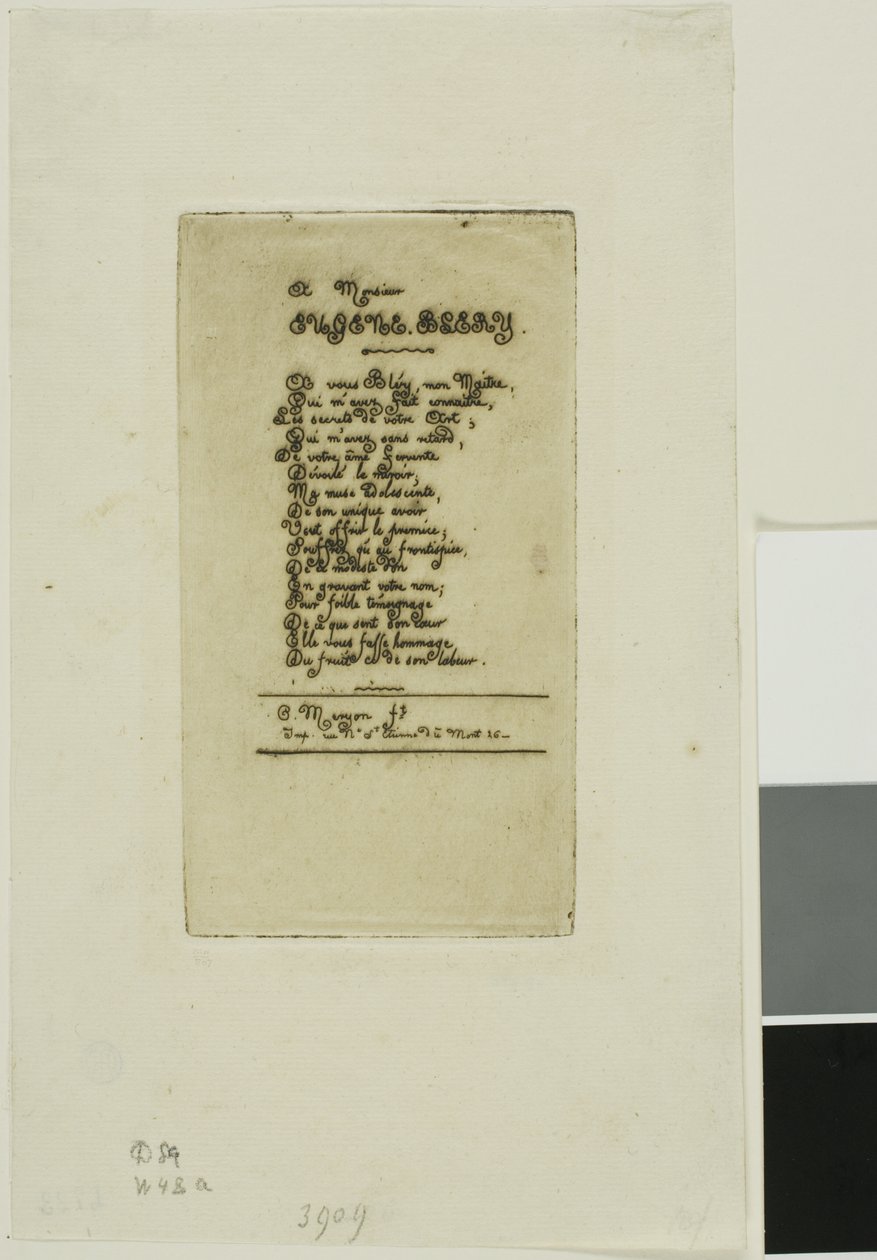 A Monsieur
EUGENE. BLERY.
A vous Bléry, mon Maitre,
Qui m'avez fait connaitre,
Les secrets de votre Art ;
Qui m'avez sans retard,
De votre âme fervente
Dévoilé le miroir;
Ma muse adolescente,
De son unique avoir
Veut offrir le prémice;
Souffrez qu'au frontispice,
De ce modeste don
En gravant votre nom;
Pour foible témoignage
De ce que sent son cœur
Elle vous fasse hommage
Du fruit ce de son labeur.
C. Meryon ft
Imp. rue Nve St Etienne du Mont 26-
D 89
W 48 a
3909